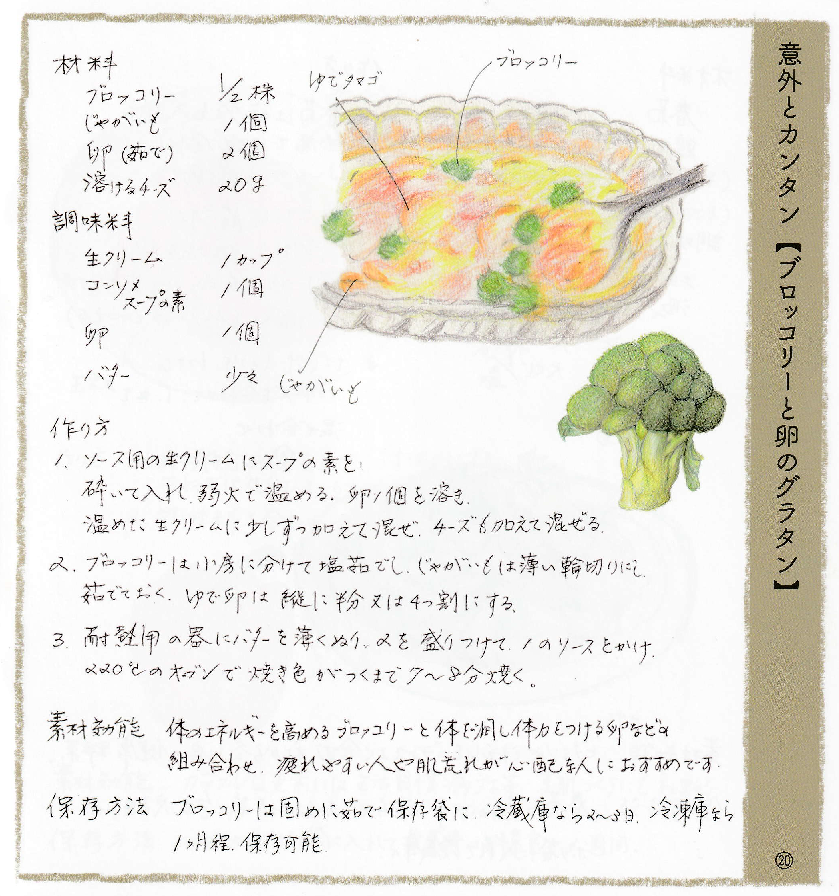 意外とカンタン【ブロッコリーと卵のグラタン】
材料
ブロッコリー 1/2株
じゃがいも 1個
卵(茹で) 2個
溶けるチーズ 20g
調味料
生クリーム 1カップ
コンソメ
スープの素 1個
卵 1個
バター 少々
ゆでタマゴ
ブロッコリー
じゃがいも
作り方
1. ソース用の生クリームにスープの素を
砕いて入れ、弱火で温める。卵1個を溶き、
温めた生クリームに少しずつ加えて混ぜ、チーズも加えて混ぜる。
2. ブロッコリーは小房に分けて塩茹でし、じゃがいもは薄い輪切りにし、
茹でておく。ゆで卵は縦に半分又は4つ割にする。
3. 耐熱用の器にバターを薄くぬり、2を盛りつけて、1のソースをかけ、
220℃のオーブンで焼き色がつくまで7〜8分焼く。
素材効能 体のエネルギーを高めるブロッコリーと体を潤し体力をつける卵などの
組み合わせ。疲れやすい人や肌荒れが心配な人におすすめです。
保存方法 ブロッコリーは固めに茹で保存袋に。冷蔵庫なら2〜3日、冷凍庫なら
1ヶ月程、保存可能。
⑳